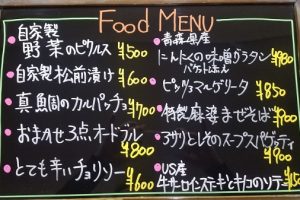 Food MENU
自家製
野菜のピクルス ¥500
自家製松前漬け ¥600
真鯛のカルパッチョ ¥700
おまかせ3点オードブル
¥800
とても辛いチョリソー
¥600
青森県産
にんにくの味噌グラタン
バケット添え ¥980
ピッツァマルゲリータ
¥850
特製麻婆まぜそば ¥900
アサリとしそのスープスパゲッティ
¥900
US産
牛サーロインステーキとキノコのソテー